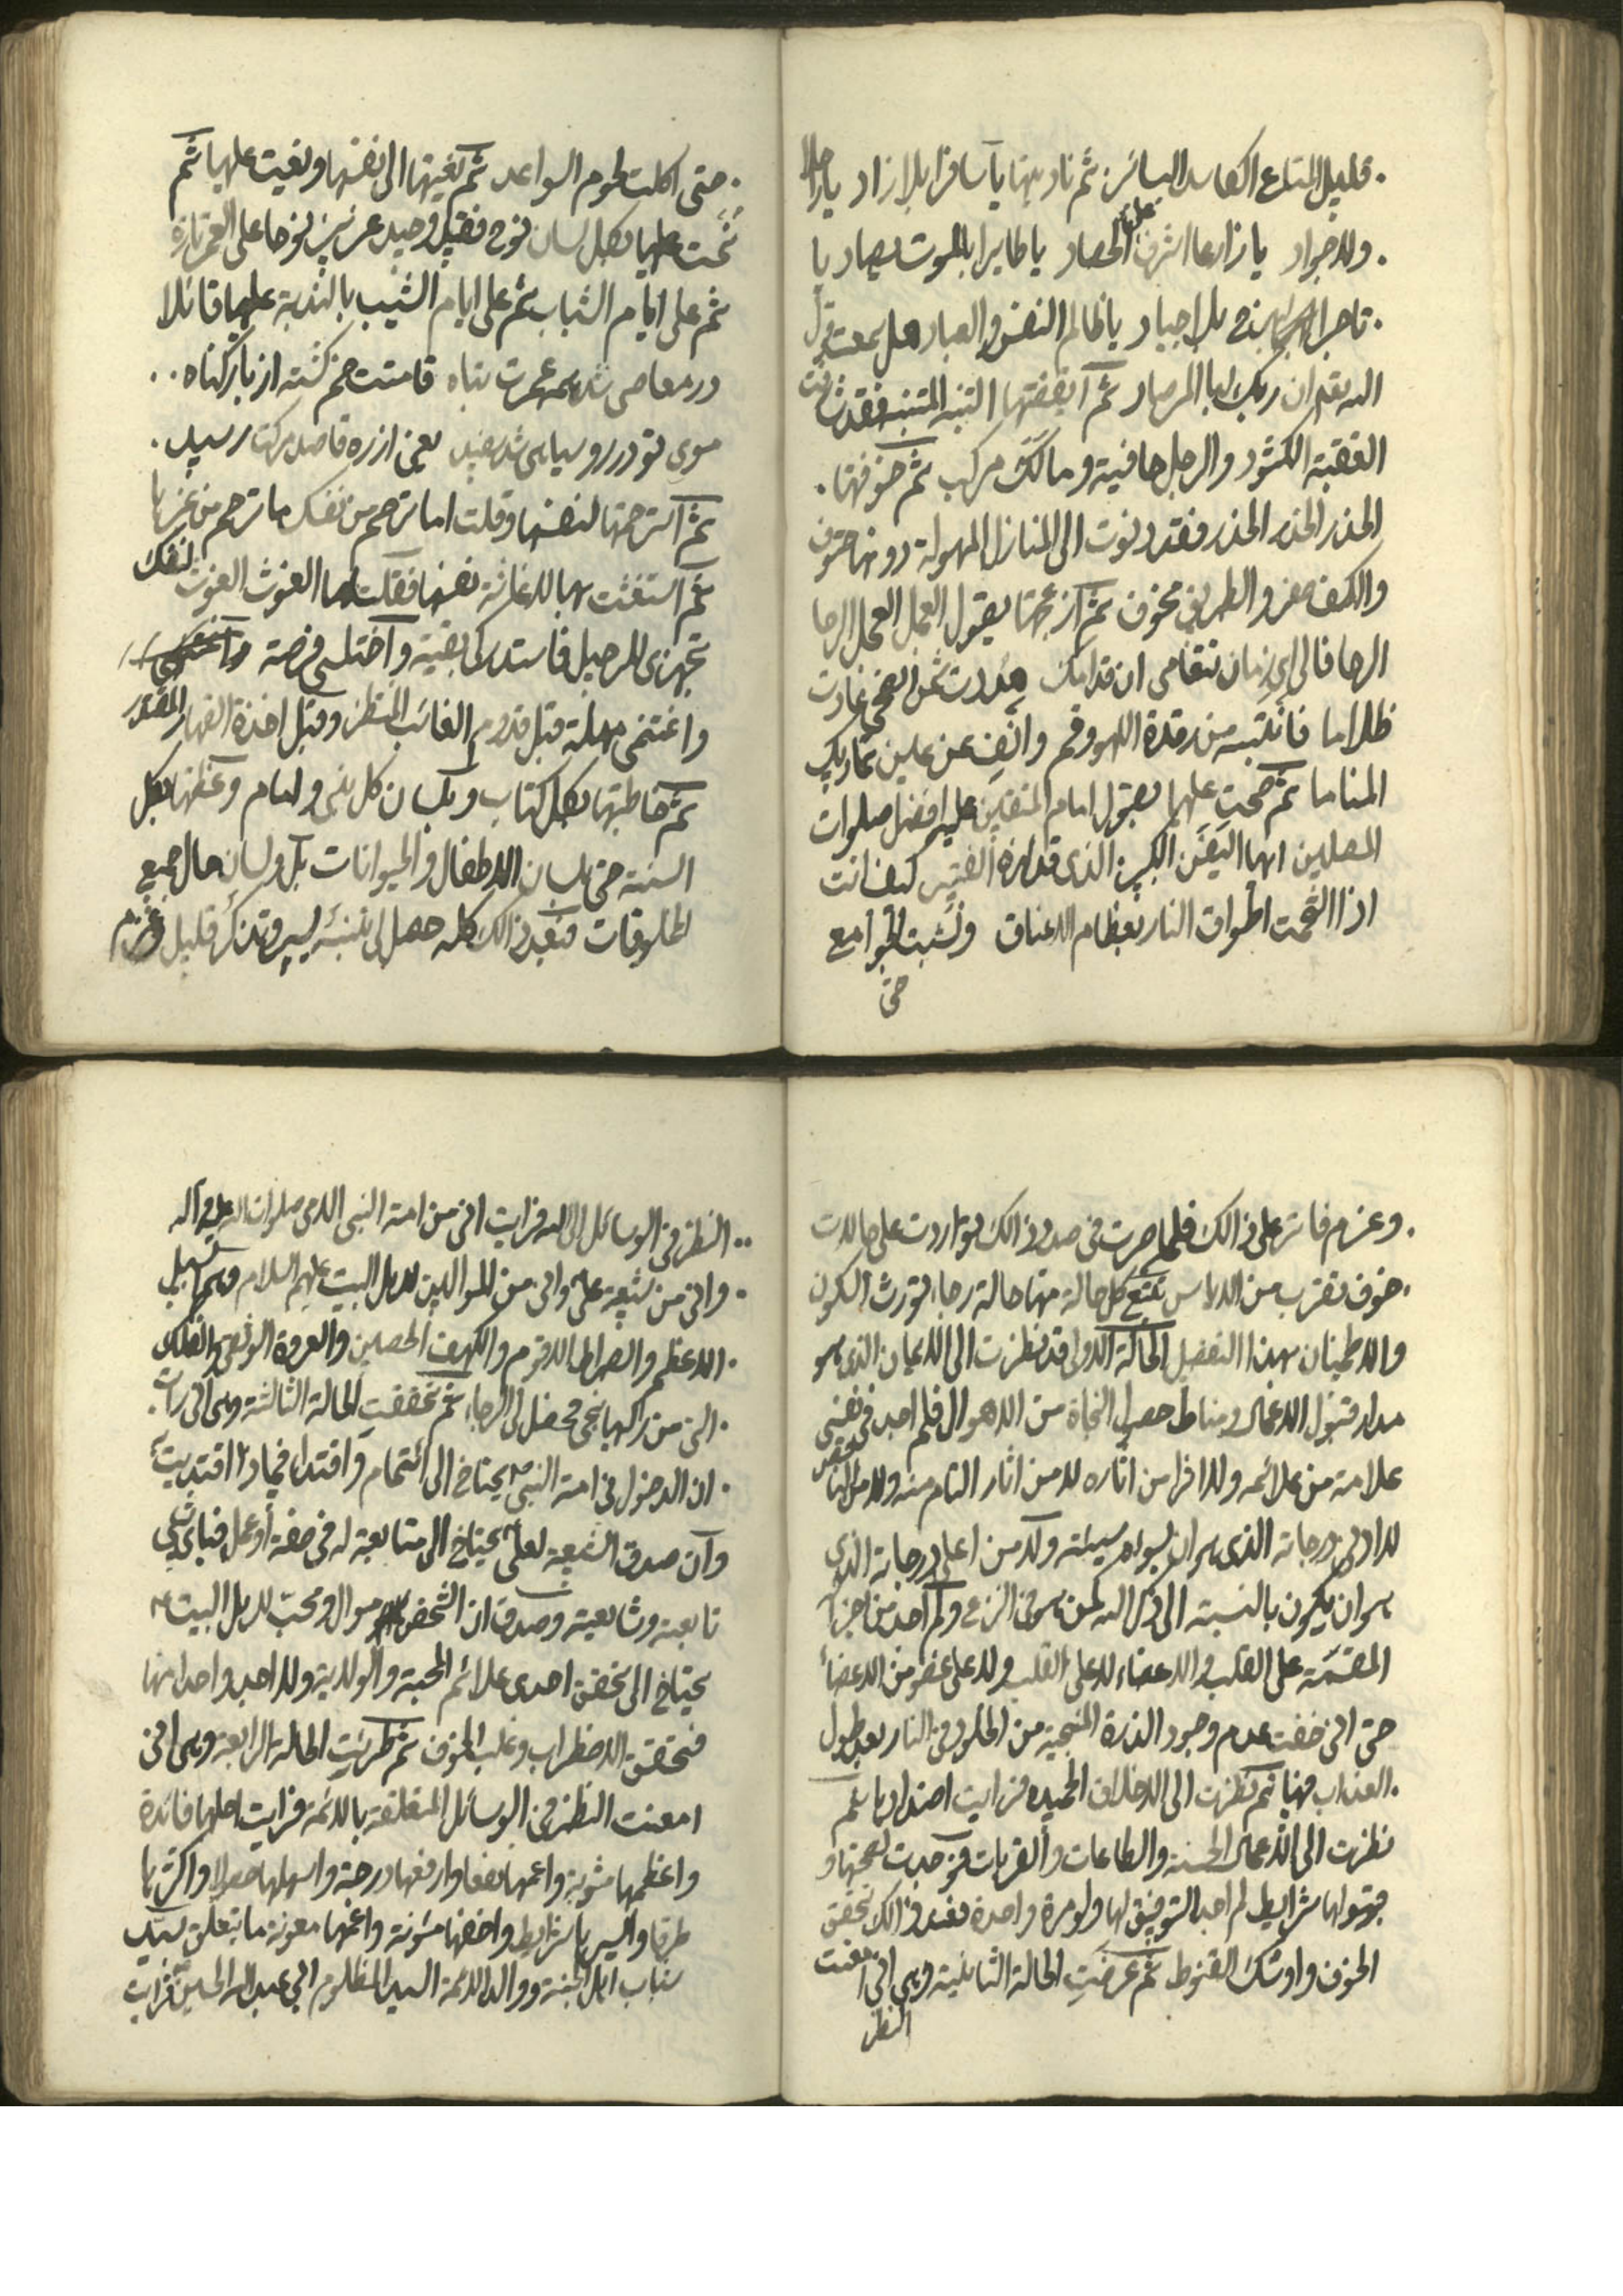 قليل المتاع الكاسد البائر ثم ناديتها يا مسافرا بلا زاد يا راحلا
ولا جواد يا زارعا اشرف على الحصاد يا طايرا بالموت يصاد يا
تاجرا بلا جياد يا ظالم النفس والعباد هل سمعت قول
الله تعالى ان ربك لبالمرصاد ثم ايقظتها التنبه المتنبه فقد شارفت
العقبة الكئود والرجل حافية ومالك مركب ثم خوفتها
الحذر الحذر الحذر فقد دنوت الى المنازل المهولة دونها حتوف
والكف صفر والطريق مخوف ثم ازعجتها بقول العجل العجل الوحا
الوحا فالى اي زمان تتعامى ان قدامك غارت
ظلاما فانتبه من رقدة اللهو وقم وانف عن عين تماديك
المناما ثم صحت عليها بقول امام المتقين عليه افضل صلوات
المصلين ايها اليفن الكبير الذي قد لهزه القتير كيف انت
اذا التحمت اطواق النار بعظام الاعناق ونشبت الجوامع
حتى
حتى اكلت لحوم السواعد ثم نعيتها الى نفسها ونعيت عليها ثم
نحت عليها بكل لسان نوح فقيد وحيد عزيز نوحا على العمر تارة
ثم على ايام الشباب ثم على ايام الشيب بالندبة عليها قائلا
در معاصى شد همه عمرت تباه قامتت خم كشته از بار كناه
موى تو در رو سياهى شد سفيد يعنى از ره قاصد مركت رسيد
ثم استرحمتها لنفسها وقلت اما ترحم من نفسك ما ترحم من غيرها
ثم استغثت بها لاغاثة نفسها فقلت لها الغوث الغوث لنفسك
تجهزي للرحيل فاستدركي بقية واختلسي فرصة
واغتنمي مهلة قبل قدوم الغائب المنتظر وقبل اخذة القهار المقتدر
ثم خاطبتها بكل كتاب وبلسان كل نبي وامام ووعظتها بكل
السنة حتى بلسان الاطفال والحيوانات بل ولسان حال جميع
المخلوقات فبعد ذالك كله حصل لي تنبه يسير وتذكر قليل وعزم
وعزم فاتر على ذالك فلما صرت في صدد ذالك تواردت علي حالات
خوف تقرب من الاياس تتبع كل حالة منها حالة رجاء تورث السكون
والاطمينان بهذا التفصيل الحالة الاولى قد نظرت الى الايمان الذي هو
مدار قبول الاعمال ومناط حصول النجاة من الاهوال فلم اجد في نفسي
علامة من علائمه ولا اثرا من آثاره لا من آثار التام منه ولا من الناقص
لا ادنى درجاته الذي هو ان يسوءه سيئته ولا من اعلى درجاته الذي
هو ان يكون بالنسبة الى ذكر الله كمن هو في النزع ولم اجد من اجزائه
المقسمة على القلب والاعضاء لا على القلب ولا على عضو من الاعضاء
حتى اني خفت عدم وجود الذرة المنجية من الخلود في النار بعد طول
العذاب فيها ثم نظرت الى الاخلاق الحميده فرايت اضدادها ثم
نظرت الى الاعمال الحسنة والطاعات والقربات فوجدت لصحتها و
قبولها شرايط لم اجد التوفيق لها ولو مرة واحدة فعند ذالك تحقق
الخوف واوشك القنوط ثم عرضت الحالة الثانية وهي اني امعنت
النظر
النظر في الوسائل الى الله فرايت اني من امة النبي الامي صلوات الله عليه وآله
واني من شيعة علي واني من الموالين لاهل البيت عليهم السلام وهم السبيل
الاعظم والصراط الاقوم والكهف الحصين والعروة الوثقى والفلك
التي من ركبها نجى فحصل لي الرجاء ثم تحققت الحالة الثالثة وهي اني رايت
ان الدخول في امة النبي يحتاج الى ائتمام واقتداء فبماذا اقتديت
وان صدق الشيعة لعلي يحتاج الى متابعة له في صفة او عمل فباي شيء
تابعته وشايعته وصدق ان الشخص موال ومحب لاهل البيت
يحتاج الى تحقق احدى علائم المحبة والولاية ولا اجد واحدا منها
فتحقق الاضطراب وغلب الخوف ثم طرئت الحالة الرابعة وهي اني
امعنت النظر في الوسائل المتعلقة بالائمة فرايت اجلها فائدة
واعظمها مثوبة واعمها نفعا وارفعها درجة واسهلها حصولا واكثرها
طرقا وايسرها شرايط واخفها مئونة واعمها معونة ما يتعلق بسيد
شباب اهل الجنة ووالد الائمة السيد المظلوم ابي عبد الله الحسين فرايت